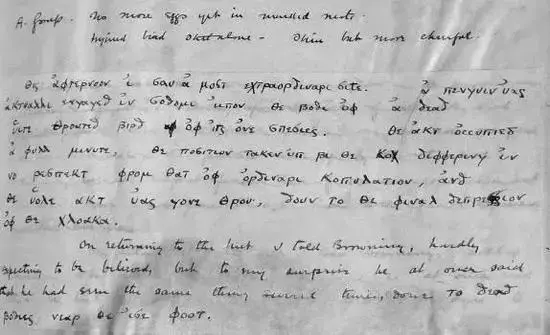 A. Group. No more eggs yet in nests.
Injured bird alone – Thin but more cheerful.
θις ἀφτερνοον ἰ σαυ ἀ μοστ εχτραορδιναρι σιτε. ἀ πενγυιν ὑας
ἀκτυαλλι ενγαγεδ ἰν σοδομι ὐπον θε βοδε ὀφ ἀ δεαδ
ὑιτε θροατεδ βιρδ ὀφ ἰτς ὀνε σπεσιες. θε ἀκτ ὀccυπιεδ
ἀ φυλλ μινυτε, θε ποσιτιον τακεν ὐπ βι θε κοχ διφφερινγ ἰν
νο ρεσπεκτ φρομ θατ ὀφ ὀρδιναρι κοπυλατιον, ἀνδ
θε ὑολε ακτ ὑας γονε θρου, δουν το θε φιναλ δεπρεσσιον
ὀφ θε χλοακα.
On returning to the hut I told Browning, hardly
expecting to be believed, but to my surprise he at once said
that he had seen the same thing several times, done το δεαδ
βοδιες νεαρ θε ἰσε φοοτ.